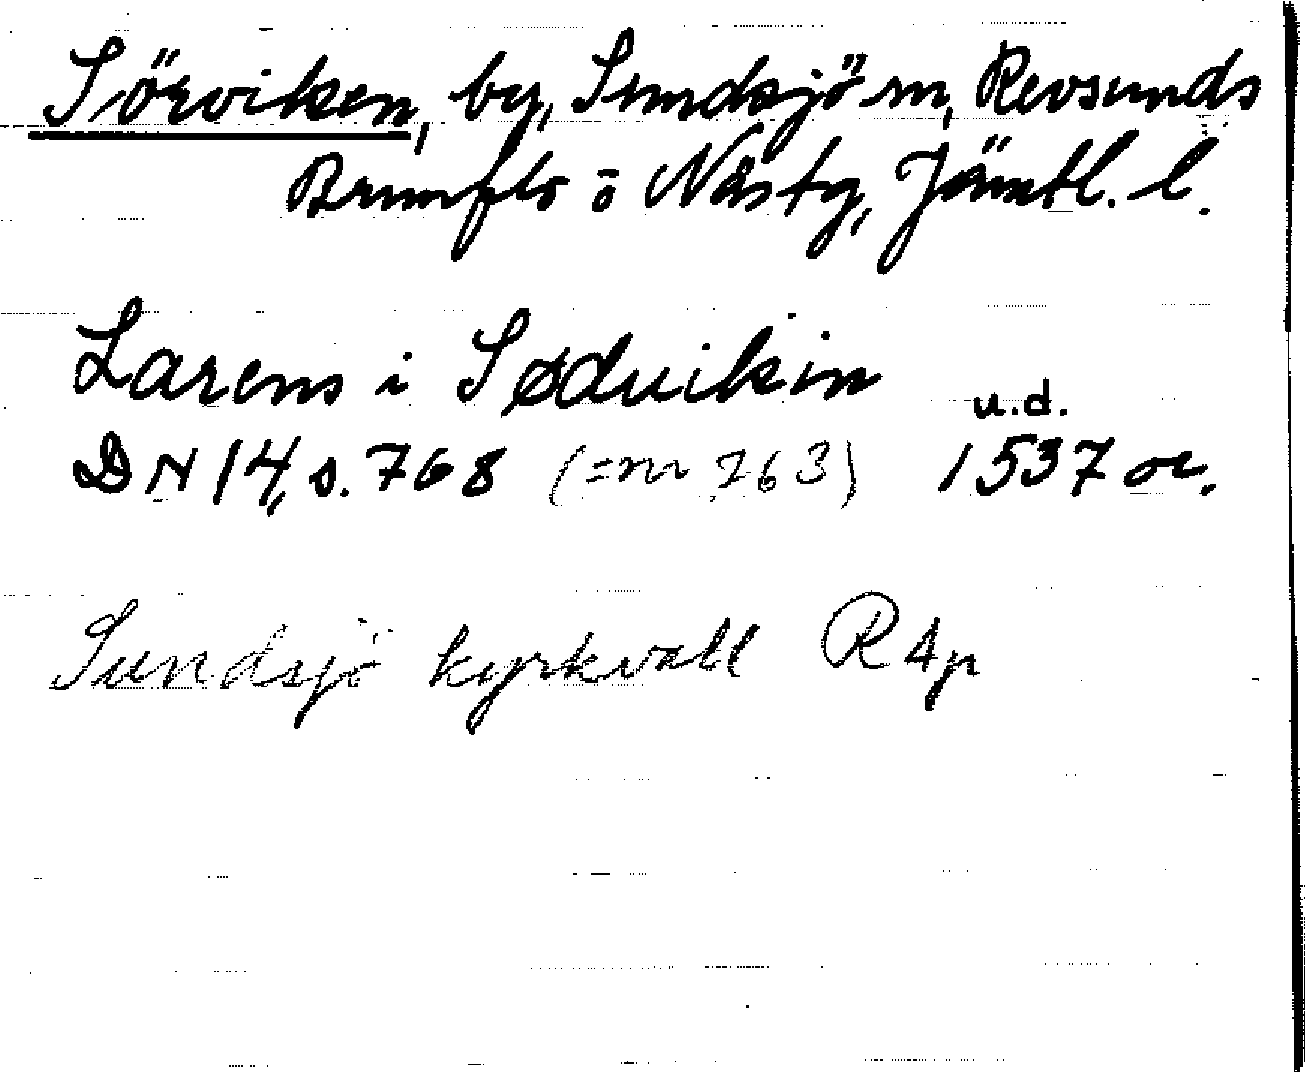 Sörviken, by, Sundsjö sn, Revsunds
Brunflo o Näs tg, Jämtl. l.
Larens i Søduikin
u.d.
DN 14, s. 768 (=nr 763) 1537 or.
Sundsjö kyrkvall R Ap